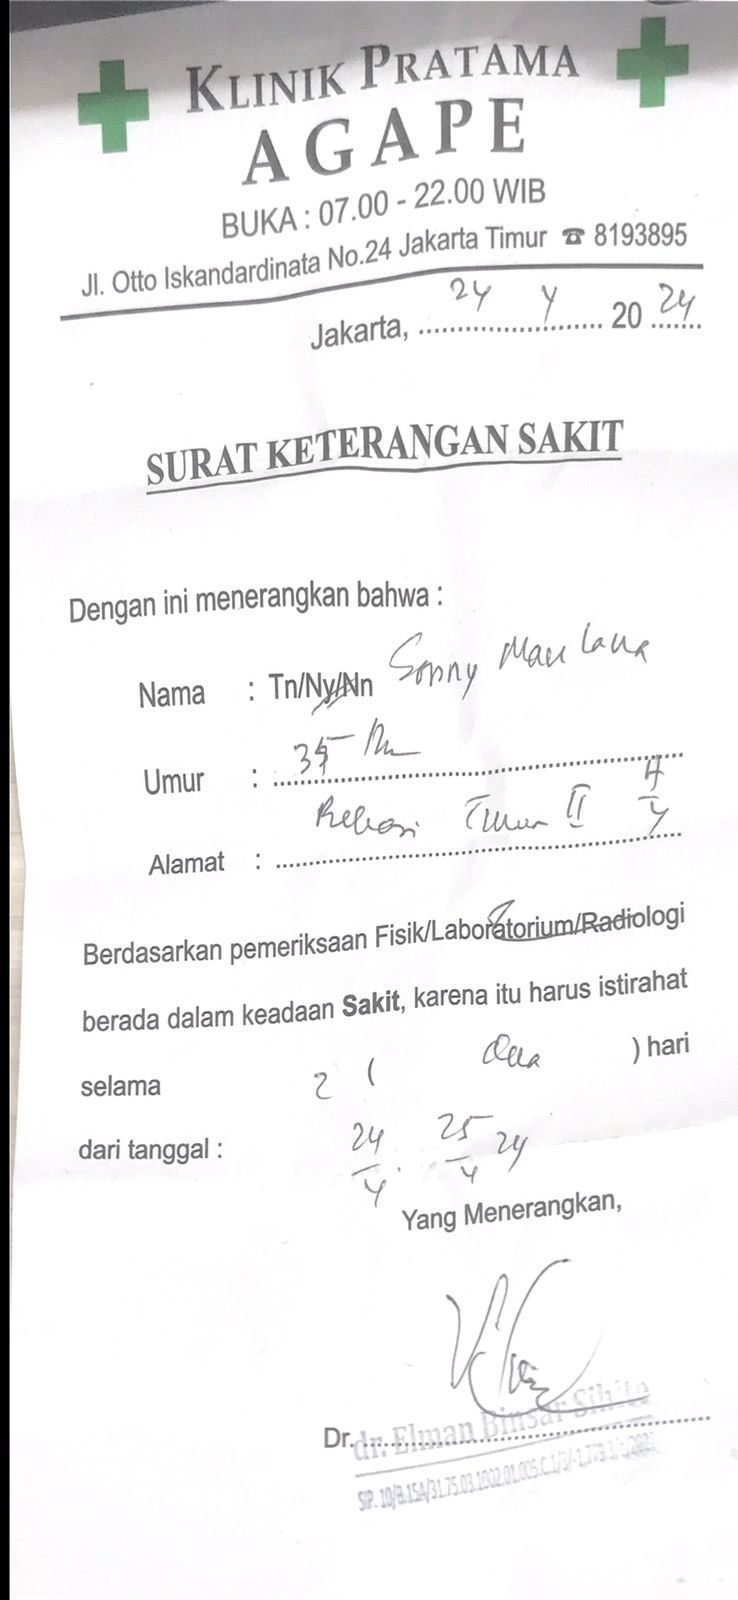 KLINIK PRATAMA
AGAPE
BUKA : 07.00 - 22.00 WIB
Jl. Otto Iskandardinata No.24 Jakarta Timur ☎ 8193895
Jakarta, 24 4 20 24
SURAT KETERANGAN SAKIT
Dengan ini menerangkan bahwa :
Nama : Tn/Ny/Nn Sonny Maulana
Umur : 35
Alamat : Timur II
Berdasarkan pemeriksaan Fisik/Laboratorium/Radiologi
berada dalam keadaan Sakit, karena itu harus istirahat
selama 2 ( Dua ) hari
dari tanggal : 24/4 25/4 24
Yang Menerangkan,
Dr. dr. Elman Binsar Sihite